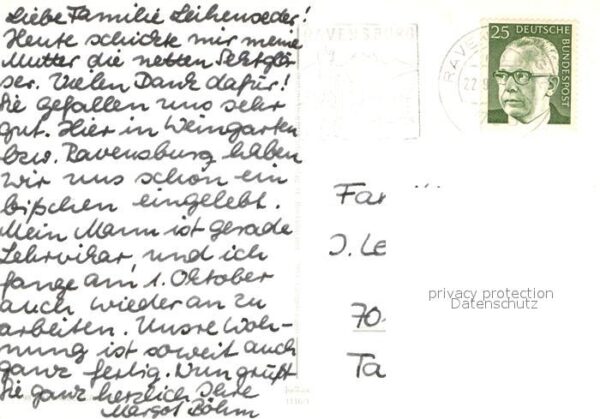 Liebe Familie Leihenseder!
Heute schickte mir meine
Mutter die netten Sektglä-
ser. Vielen Dank dafür!
Sie gefallen uns sehr
gut. Hier in Weingarten
bzw. Ravensburg haben
wir uns schon ein
bißchen eingelebt.
Mein Mann ist gerade
Lehrvikar und ich
fange am 1. Oktober
auch wieder an zu
arbeiten. Unsre Woh-
nung ist soweit auch
ganz fertig. Nun grüßt
Sie ganz herzlich Ihre
Margot Böhm
25 DEUTSCHE
BUNDESPOST
RAVENSBURG
Fa
J. Le
70
Ta
privacy protection
Datenschutz